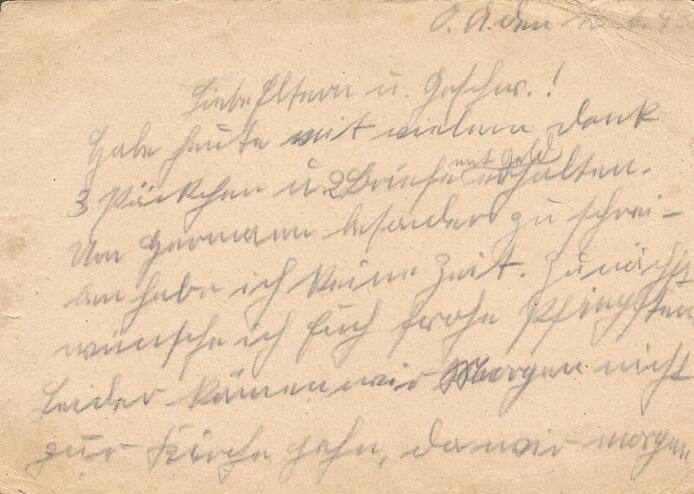 O. A. den
Liebe Eltern u. Geschw.!
Habe heute mit vielem Dank
mit Geld
3 Päckchen u. 2 Briefe erhalten.
Um Hermann besonders zu schrei-
ben habe ich keine Zeit. Zunächst
wünsche ich Euch frohe Pfingsten
Leider können wir Morgen nicht
zur Kirche gehn, da wir morgen